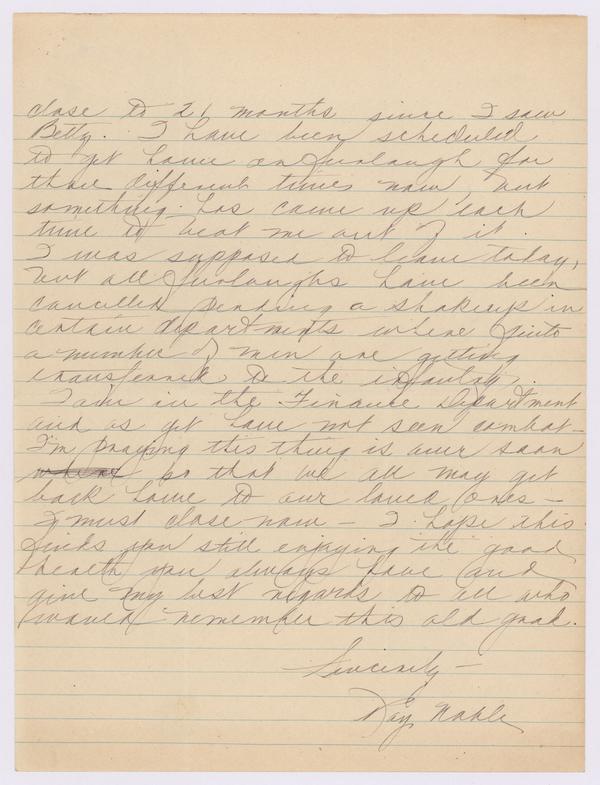 close to 21 months since I saw
Betty. I have been scheduled
to get home on furlough for
three different times now, but
something has came up each
time to beat me out of it.
I was supposed to leave today,
but all furloughs have been
cancelled pending a shakeup in
certain departments where quite
a number of men are getting
transferred to the infantry.
I am in the Finance Department
and as yet have not seen combat -
I'm praying this thing is over soon
so that we all may get
back home to our loved ones -
I must close now - I hope this
finds you still enjoying the good
health you always have and
give my best regards to all who
would remember this old goat.
Sincerely -
Ray Noble